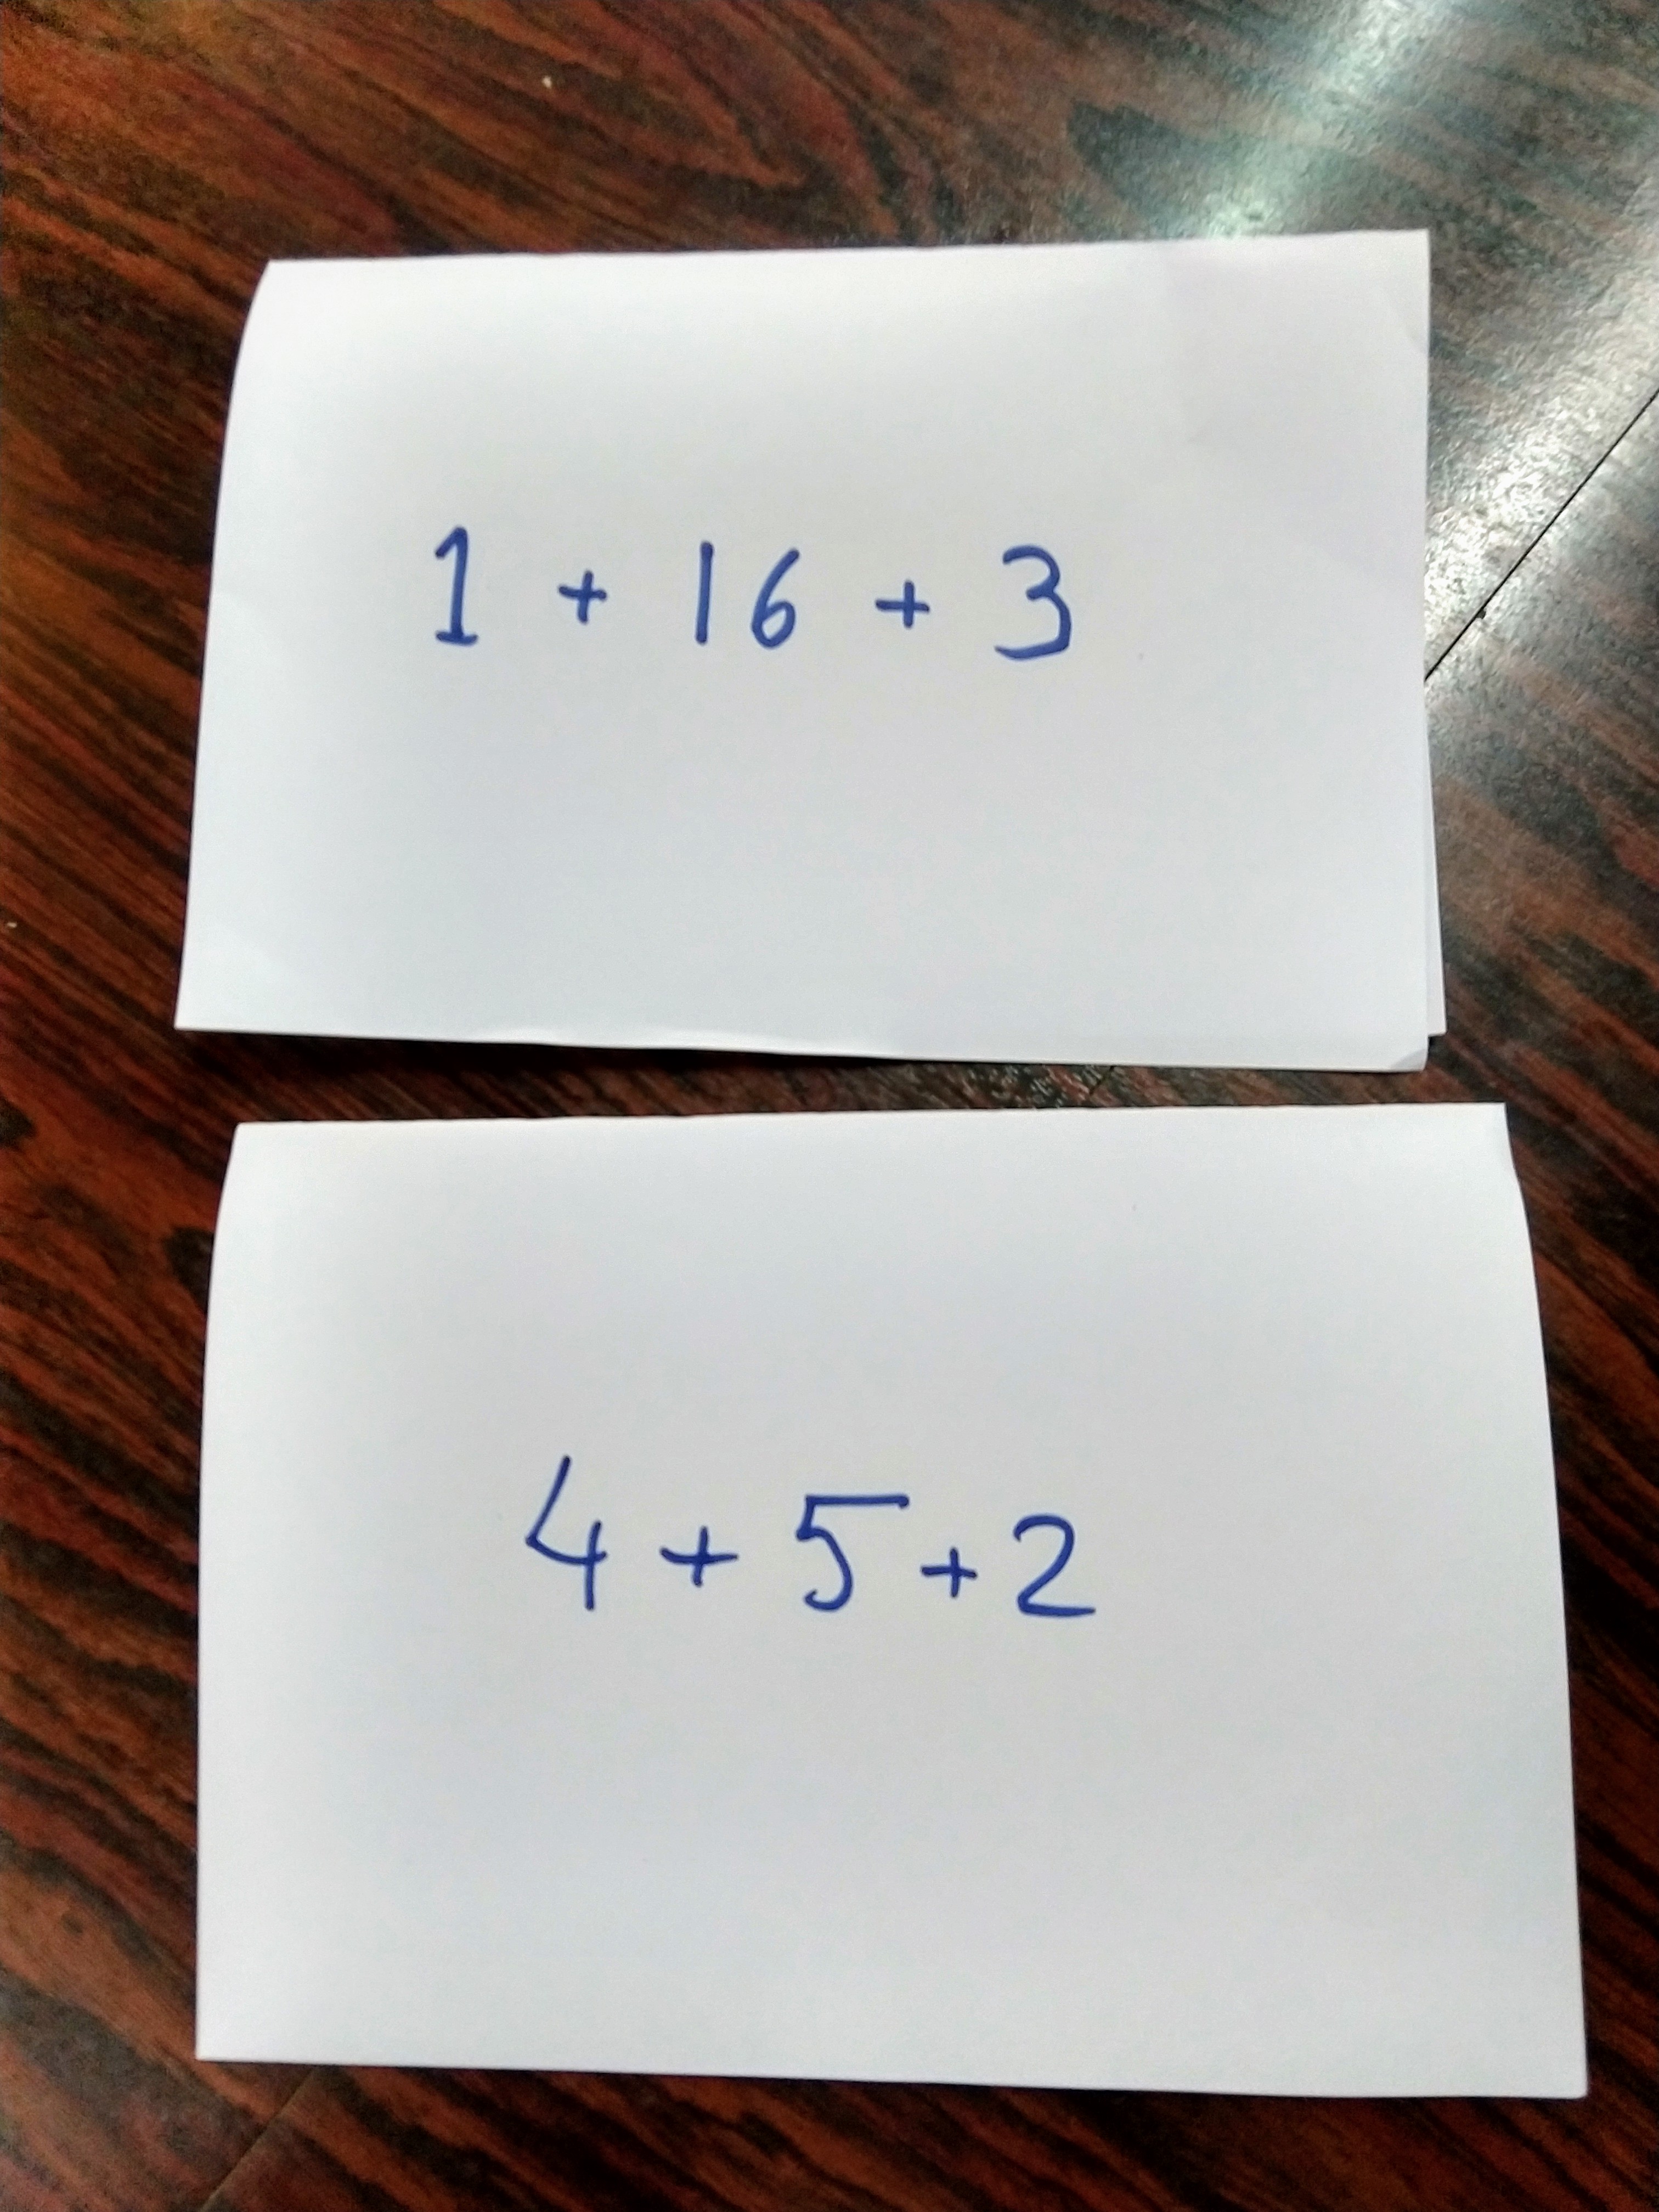 1 + 16 + 3
4 + 5 + 2